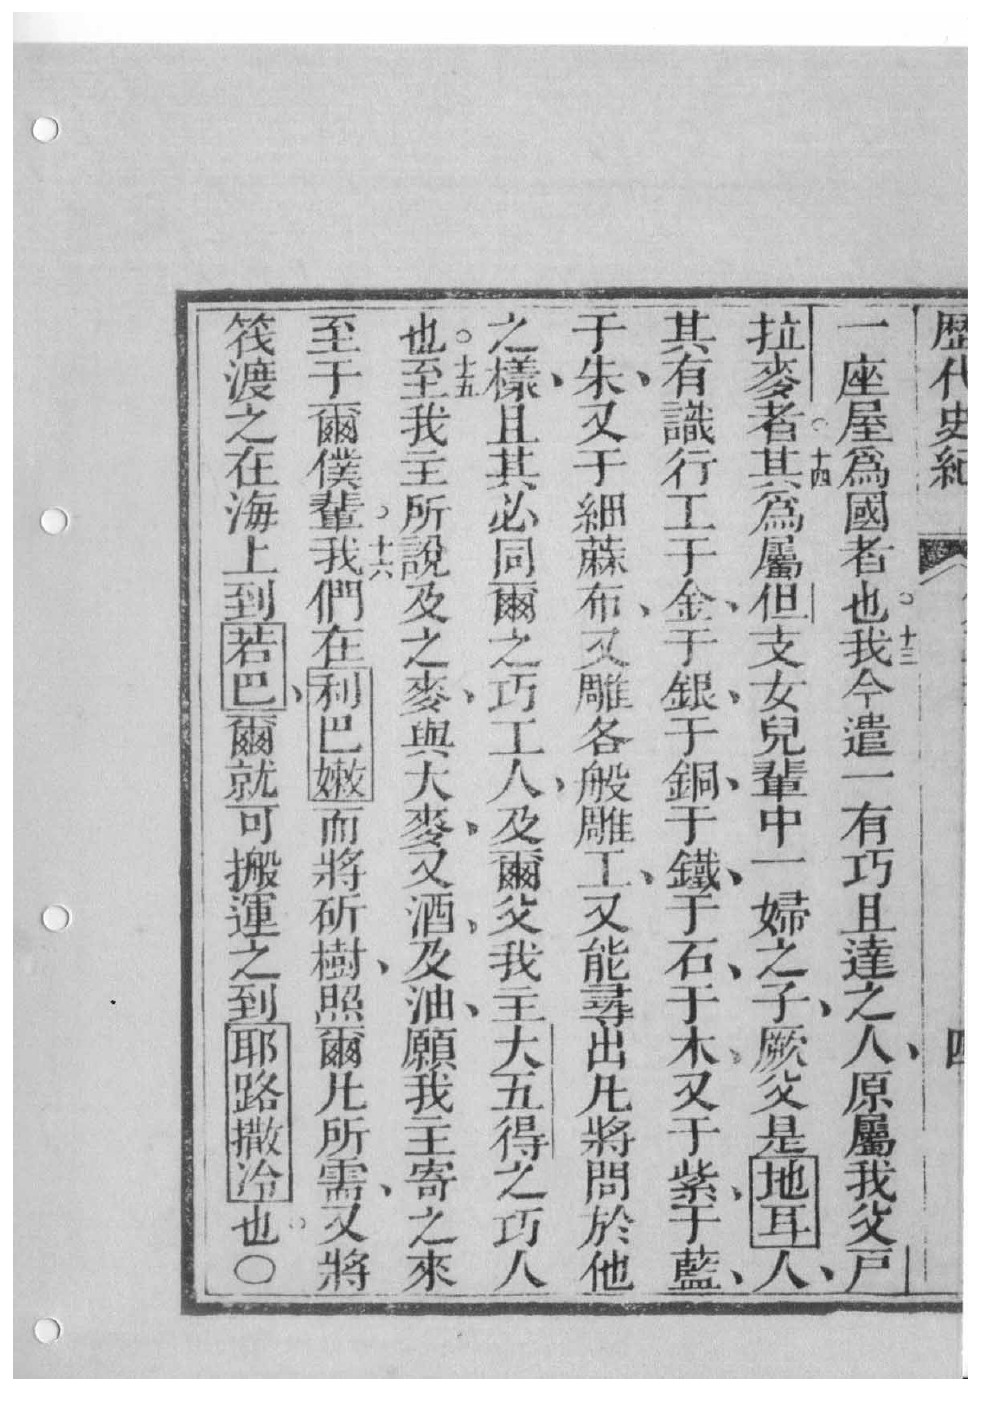 歷代史紀 四
一座屋爲國者也。十三我今遣一有巧且達之人、原屬我父戶
拉麥者。十四其爲屬但支女兒輩中一婦之子、厥父是地耳人、
其有識行工于金、于銀、于銅、于鐵、于石、于木、又于紫、于藍、
于朱、又于細蔴布、又雕各般雕工、又能尋出凡將問於他
之樣、且其必同爾之巧工人、及爾父我主大五得之巧人
也。十五至我主所說及之麥、與大麥、又酒、及油、願我主寄之來
至于爾僕輩。十六我們在利巴嫩而將斫樹、照爾凡所需、又將
筏渡之在海上到若巴、爾就可搬運之到耶路撒冷也。○